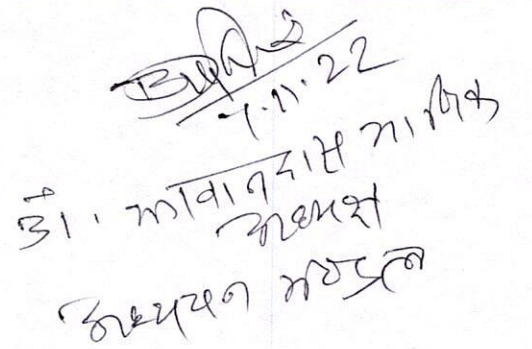 7.11.22
डॉ. भगवानदास माणिक
अध्यक्ष
अध्ययन मण्डल